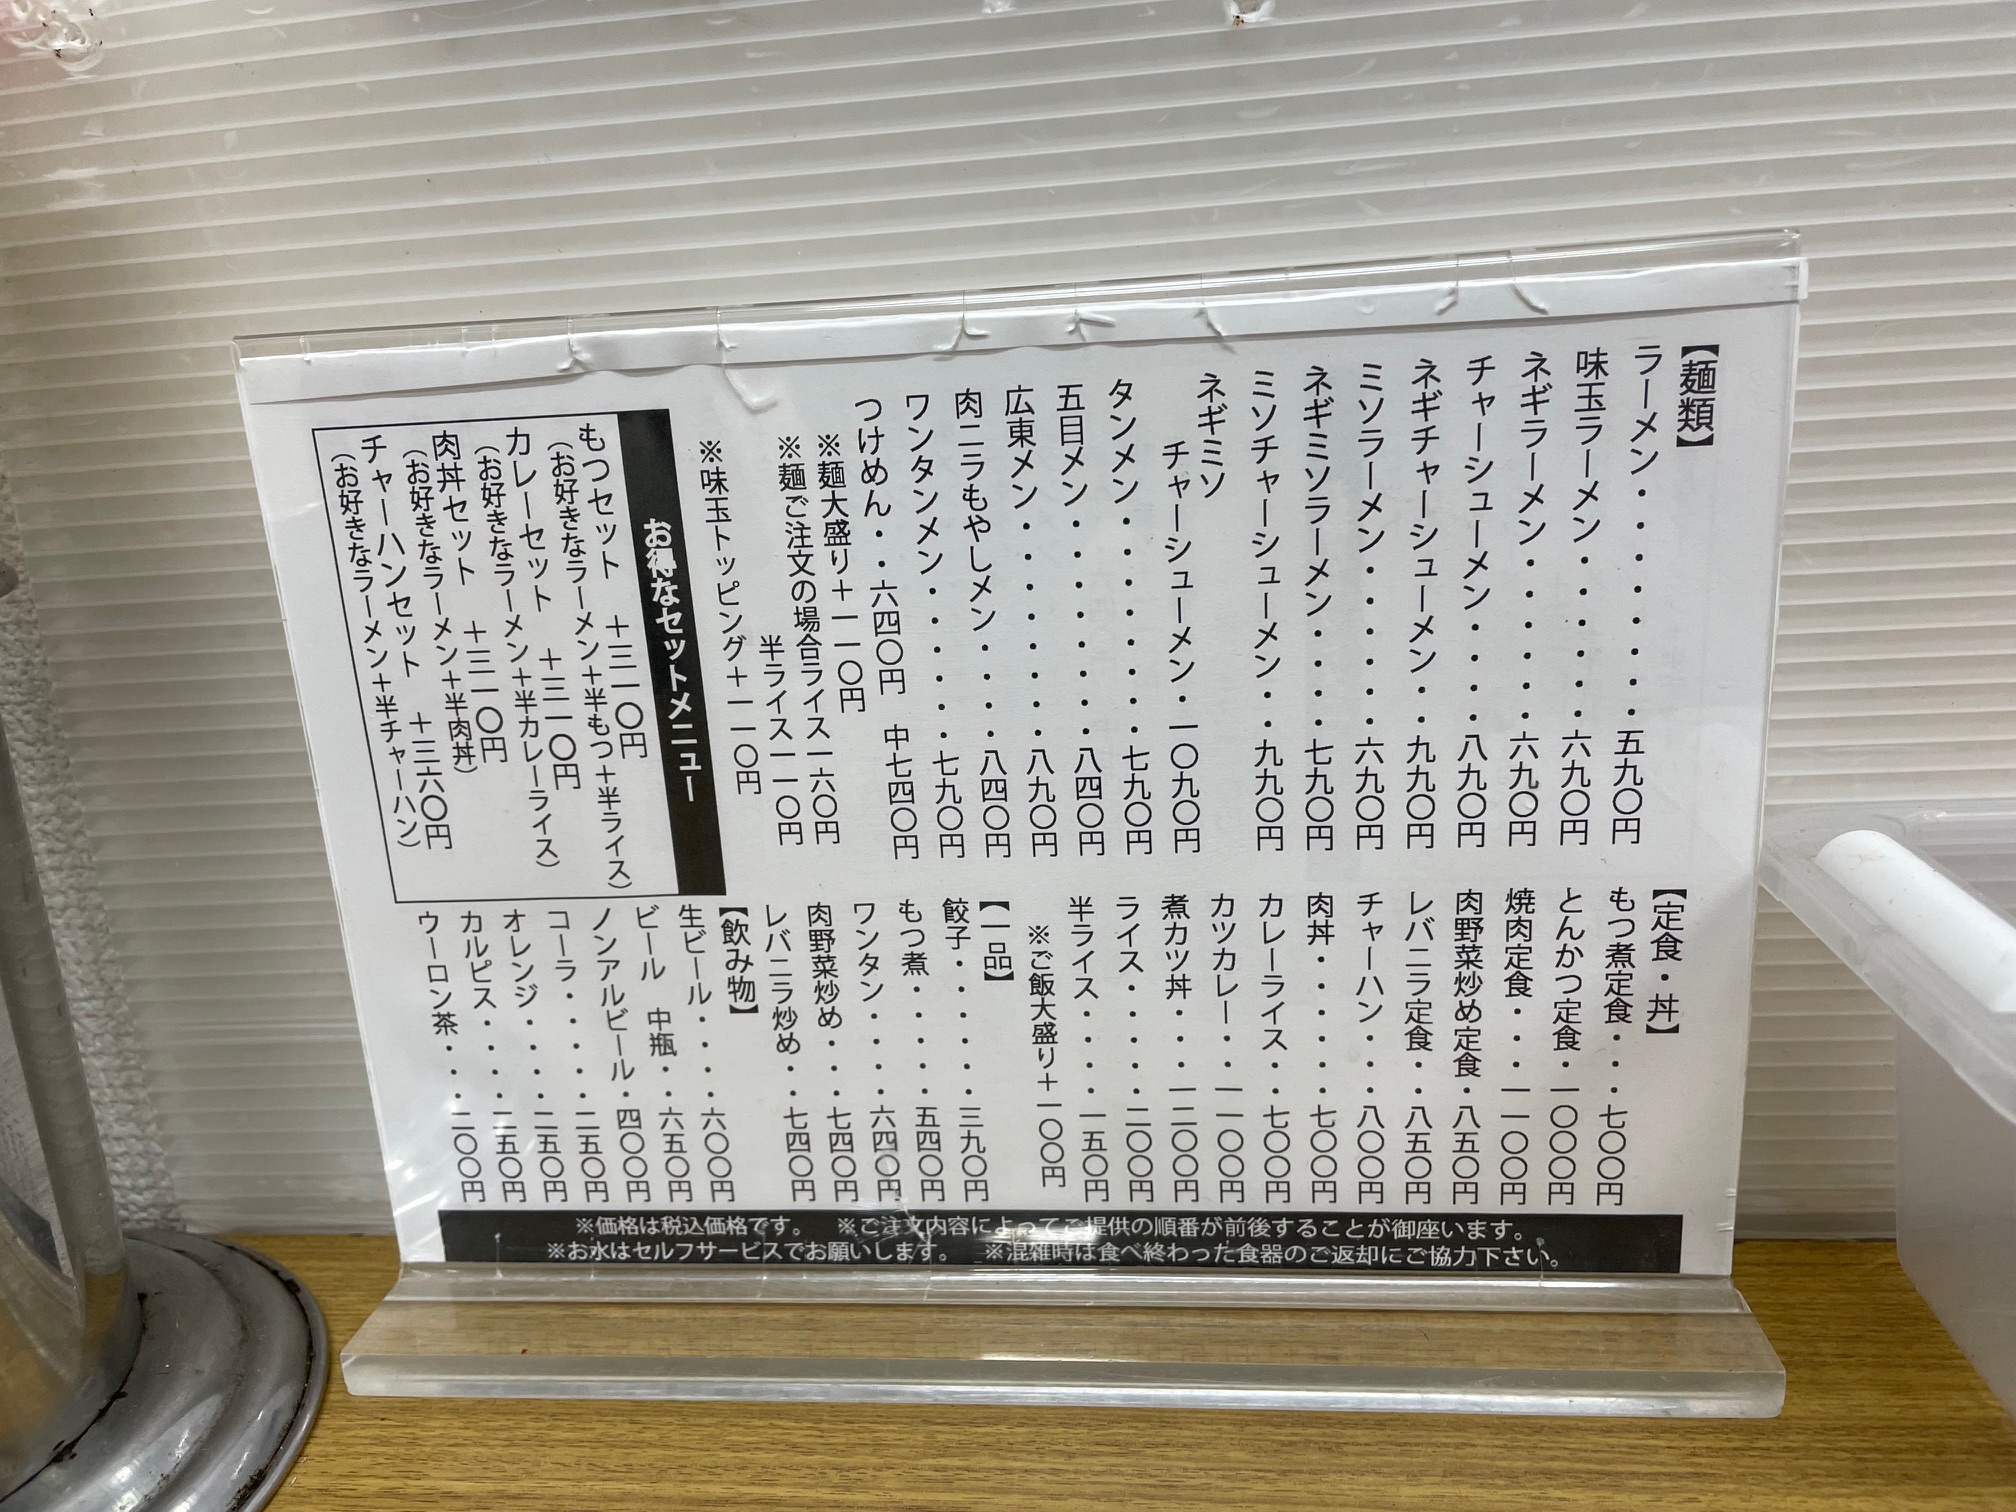 【麺類】
ラーメン・・・・・・・・五九〇円
味玉ラーメン・・・・・・六九〇円
ネギラーメン・・・・・・六九〇円
チャーシューメン・・・・八九〇円
ネギチャーシューメン・・九九〇円
ミソラーメン・・・・・・六九〇円
ネギミソラーメン・・・・七九〇円
ミソチャーシューメン・・九九〇円
ネギミソ
チャーシューメン・一〇九〇円
タンメン・・・・・・・・七九〇円
五目メン・・・・・・・・八四〇円
広東メン・・・・・・・・八九〇円
肉ニラもやしメン・・・・八四〇円
ワンタンメン・・・・・・七九〇円
つけめん・・六四〇円 中七四〇円
※麺大盛り＋一一〇円
※麺ご注文の場合ライス一六〇円
半ライス一一〇円
※味玉トッピング＋一一〇円
お得なセットメニュー
もつセット ＋三一〇円
(お好きなラーメン＋半もつ＋半ライス)
カレーセット ＋三一〇円
(お好きなラーメン＋半カレーライス)
肉丼セット ＋三一〇円
(お好きなラーメン＋半肉丼)
チャーハンセット ＋三六〇円
(お好きなラーメン＋半チャーハン)
【定食・丼】
もつ煮定食・・・七〇〇円
とんかつ定食・一〇〇〇円
焼肉定食・・・一一〇〇円
肉野菜炒め定食・八五〇円
レバニラ定食・・八五〇円
チャーハン・・・八〇〇円
肉丼・・・・・・七〇〇円
カレーライス・・七〇〇円
カツカレー・・一一〇〇円
煮カツ丼・・・一二〇〇円
ライス・・・・・二〇〇円
半ライス・・・・一五〇円
※ご飯大盛り＋一〇〇円
【一品】
餃子・・・・・・三九〇円
もつ煮・・・・・五四〇円
ワンタン・・・・六四〇円
肉野菜炒め・・・七四〇円
レバニラ炒め・・七四〇円
【飲み物】
生ビール・・・・六〇〇円
ビール 中瓶・・六五〇円
ノンアルビール・四〇〇円
コーラ・・・・・二五〇円
オレンジ・・・・二五〇円
カルピス・・・・二五〇円
ウーロン茶・・・二〇〇円
※価格は税込価格です。 ※ご注文内容によってご提供の順番が前後することが御座います。
※お水はセルフサービスでお願いします。 ※混雑時は食べ終わった食器のご返却にご協力下さい。